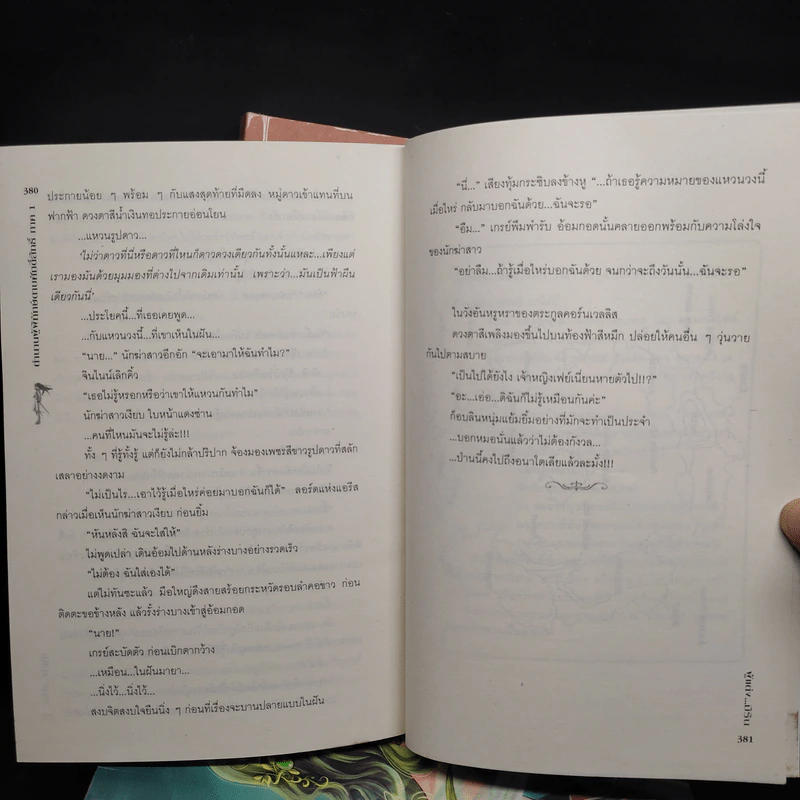 380
ประกายน้อย ๆ พร้อม ๆ กับแสงสุดท้ายที่มืดลง หมู่ดาวเข้าแทนที่บน
ฟากฟ้า ดวงตาสีน้ำเงินทอประกายอ่อนโยน
...แหวนรูปดาว...
‘ไม่ว่าดาวที่นี่หรือดาวที่ไหนก็ดาวดวงเดียวกันทั้งนั้นแหละ...เพียงแต่
เรามองมันด้วยมุมมองที่ต่างไปจากเดิมเท่านั้น เพราะว่า...มันเป็นฟ้าผืน
เดียวกันนี่’
...ประโยคนี้...ที่เธอเคยพูด...
...กับแหวนวงนี้...ที่เขาเห็นในฝัน...
“นาย...” นักฆ่าสาวอึกอัก “จะเอามาให้ฉันทำไม?”
จินไนน์เลิกคิ้ว
“เธอไม่รู้หรอกหรือว่าเขาให้แหวนกันทำไม”
นักฆ่าสาวเงียบ ใบหน้าแดงซ่าน
...คนที่ไหนมันจะไม่รู้ล่ะ!!!
ทั้ง ๆ ที่รู้ทั้งรู้ แต่ก็ยังไม่กล้าปริปาก จ้องมองเพชรสีขาวรูปดาวที่สลัก
เสลาอย่างงดงาม
“ไม่เป็นไร...เอาไว้รู้เมื่อไหร่ค่อยมาบอกฉันก็ได้” ลอร์ดแห่งแอรีส
กล่าวเมื่อเห็นนักฆ่าสาวเงียบ ก่อนยิ้ม
“หันหลังสิ ฉันจะใส่ให้”
ไม่พูดเปล่า เดินอ้อมไปด้านหลังร่างบางอย่างรวดเร็ว
“ไม่ต้อง ฉันใส่เองได้”
แต่ไม่ทันซะแล้ว มือใหญ่ดึงสายสร้อยกระหวัดรอบลำคอขาว ก่อน
ติดตะขอข้างหลัง แล้วรั้งร่างบางเข้าสู่อ้อมกอด
“นาย!”
เกรย์สะบัดตัว ก่อนเบิกตากว้าง
...เหมือน...ในฝันมายา...
...นิ่งไว้...นิ่งไว้...
สงบจิตสงบใจยืนนิ่ง ๆ ก่อนที่เรื่องจะบานปลายแบบในฝัน
“นี่...” เสียงทุ้มกระซิบลงข้างหู “...ถ้าเธอรู้ความหมายของแหวนวงนี้
เมื่อไหร่ กลับมาบอกฉันด้วย...ฉันจะรอ”
“อืม...” เกรย์พึมพำรับ อ้อมกอดนั้นคลายออกพร้อมกับความโล่งใจ
ของนักฆ่าสาว
“อย่าลืม...ถ้ารู้เมื่อไหร่บอกฉันด้วย จนกว่าจะถึงวันนั้น...ฉันจะรอ”
ในวังอันหรูหราของตระกูลคอร์นเวลลิส
ดวงตาสีเพลิงมองขึ้นไปบนท้องฟ้าสีหมึก ปล่อยให้คนอื่น ๆ วุ่นวาย
กันไปตามสบาย
“เป็นไปได้ยังไง เจ้าหญิงเฟย์เนี่ยนหายตัวไป!!?”
“อะ...เอ่อ...ดิฉันก็ไม่รู้เหมือนกันค่ะ”
ก็อบลินหนุ่มแย้มยิ้มอย่างที่มักจะทำเป็นประจำ
...บอกหมอนั่นแล้วว่าไม่ต้องกังวล...
...ป่านนี้คงไปถึงอนาโตเลียแล้วละมั้ง!!!
381